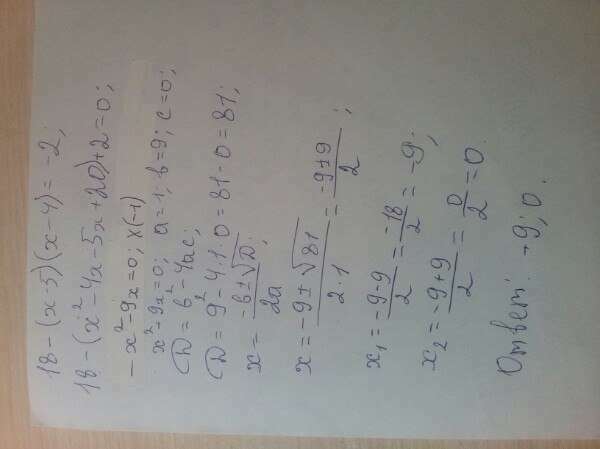 18-(x-5)(x-4)=-2;
18-(x²-4x-5x+20)+2=0;
-x²-9x=0; x(-1)
x²+9x=0; a=1; b=9; c=0;
D=b²-4ac;
D=9²-4·1·0=81-0=81;
x=\frac{-b±√D}{2a};
x=\frac{-9±√81}{2·1}=\frac{-9±9}{2};
x₁=\frac{-9-9}{2}=\frac{-18}{2}=-9;
x₂=\frac{-9+9}{2}=\frac{0}{2}=0.
Ответ: -9; 0.